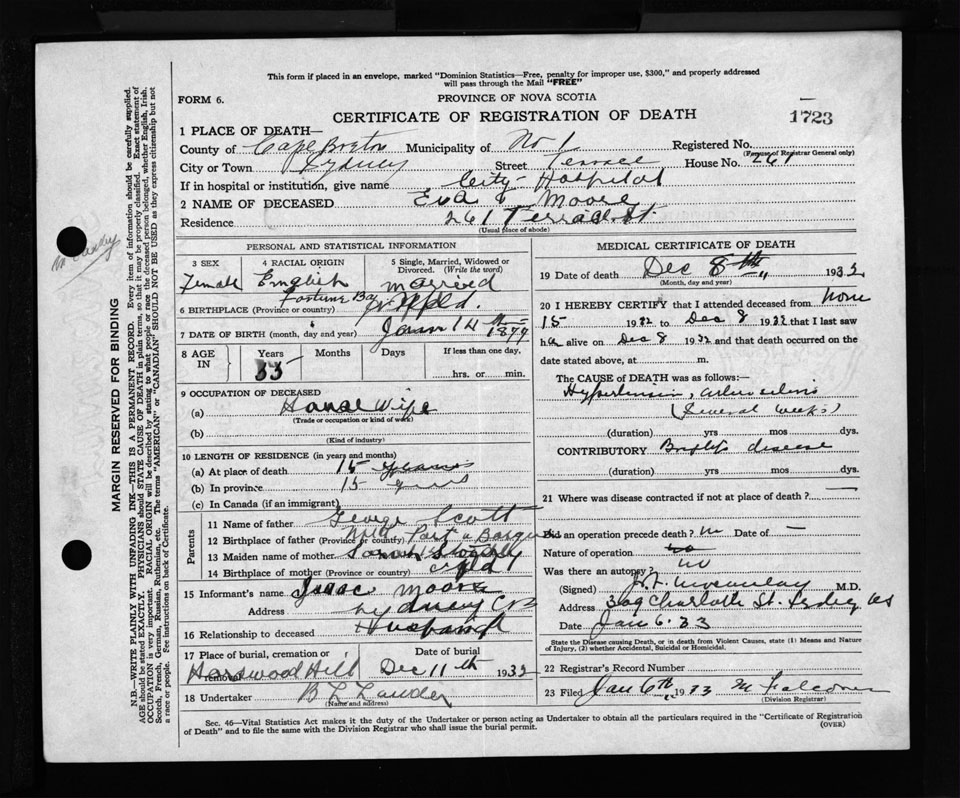 This form if placed in an envelope, marked "Dominion Statistics—Free, penalty for improper use, $300," and properly addressed
will pass through the Mail "FREE"
FORM 6.
PROVINCE OF NOVA SCOTIA
CERTIFICATE OF REGISTRATION OF DEATH
1723
1 PLACE OF DEATH—
County of Cape Breton Municipality of No 1 Registered No.
(For use of Registrar General only)
City or Town Sydney Street Terrace House No. 261
If in hospital or institution, give name City Hospital
2 NAME OF DECEASED Eva Moore
Residence 261 Terrace St.
(Usual place of abode)
PERSONAL AND STATISTICAL INFORMATION
3 SEX 4 RACIAL ORIGIN 5 Single, Married, Widowed or
Divorced. (Write the word)
Female English married
6 BIRTHPLACE (Province or country) Fortune Bay Nfld.
7 DATE OF BIRTH (month, day and year) 14th 1899
8 AGE IN Years Months Days If less than one day,
33 hrs. or min.
9 OCCUPATION OF DECEASED
(a) House Wife
(Trade or occupation or kind of work)
(b)
(Kind of industry)
10 LENGTH OF RESIDENCE (in years and months)
(a) At place of death 15 years
(b) In province 15 years
(c) In Canada (if an immigrant)
Parents
11 Name of father George Scott
12 Birthplace of father (Province or country) Nfld
13 Maiden name of mother Sarah
14 Birthplace of mother (Province or country) Nfld
15 Informant's name Isaac Moore
Address Sydney CB
16 Relationship to deceased Husband
17 Place of burial, cremation or removal Date of burial
Hardwood Hill Dec 11th 1932
18 Undertaker B L Lauder
(Name and address)
MEDICAL CERTIFICATE OF DEATH
19 Date of death Dec 8th 1932
(Month, day and year)
20 I HEREBY CERTIFY that I attended deceased from
15 1932 to Dec 8 1932 that I last saw
her alive on Dec 8 1932 and that death occurred on the
date stated above, at m.
The CAUSE of DEATH was as follows:—
Hypertension,
(Several weeks)
(duration) yrs mos dys.
CONTRIBUTORY Bright's disease
(duration) yrs. mos. dys.
21 Where was disease contracted if not at place of death? —
Did an operation precede death? no Date of —
Nature of operation
Was there an autopsy? no
(Signed) M.D.
Address 309 Charlotte St. Sydney NS
Date Jan 6. 33
State the Disease causing Death, or in death from Violent Causes, state (1) Means and Nature
of Injury, (2) whether Accidental, Suicidal or Homicidal.
22 Registrar's Record Number
23 Filed Jan 6th 1933 M Falconer
(Division Registrar)
Sec. 46—Vital Statistics Act makes it the duty of the Undertaker or person acting as Undertaker to obtain all the particulars required in the "Certificate of Registration
of Death" and to file the same with the Division Registrar who shall issue the burial permit.
(OVER)
MARGIN RESERVED FOR BINDING
N.B.—WRITE PLAINLY WITH UNFADING INK—THIS IS A PERMANENT RECORD. Every item of information should be carefully supplied.
AGE should be stated EXACTLY. PHYSICIANS should STATE CAUSE OF DEATH in plain terms, so that it may be properly classified. Exact statement of
OCCUPATION is very important. RACIAL ORIGIN will be described by stating to what people or race the deceased person belonged, whether English, Irish,
Scotch, French, German, Russian, Ruthenian, etc. The terms "AMERICAN" or "CANADIAN" SHOULD NOT BE USED as they express citizenship but not
a race or people. See instructions on back of Certificate.